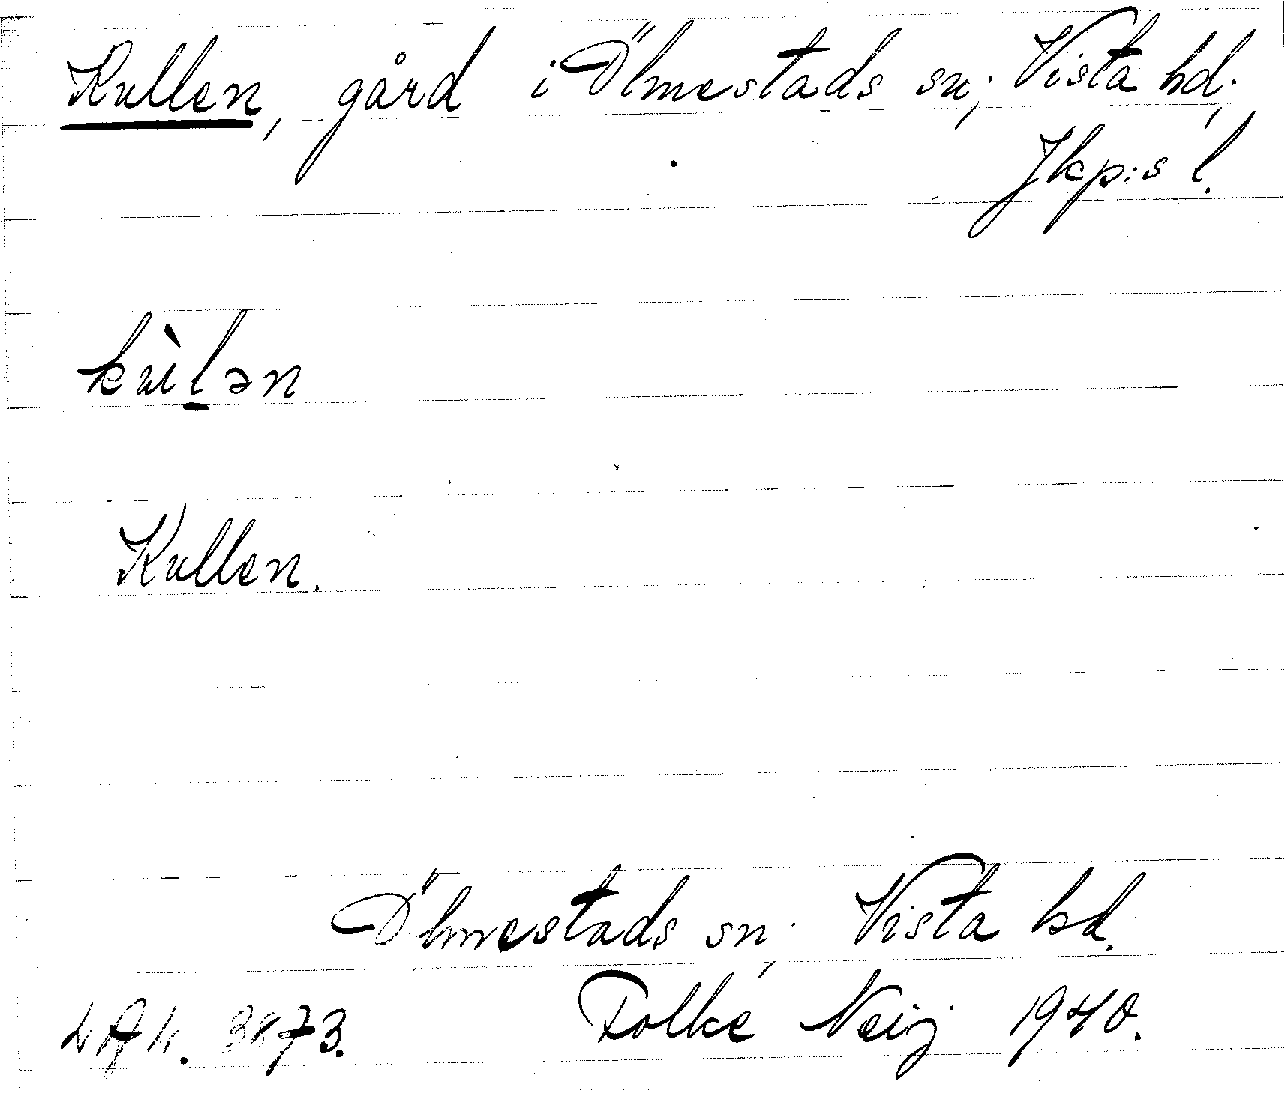 Kullen, gård i Ölmestads sn, Vista hd,
Jkp:s l.
kùl̠ən
Kullen.
Ölmestads sn, Vista hd.
Folke Neij 1940.